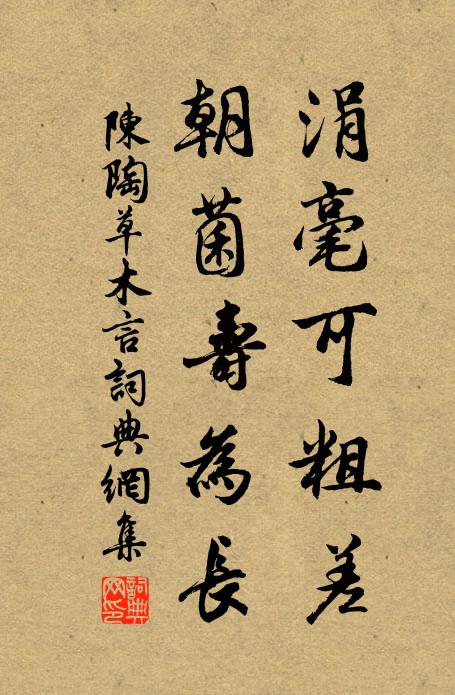 涓毫可粗差
朝菌壽為長
陳陶草木言詞典網集
詞典网印